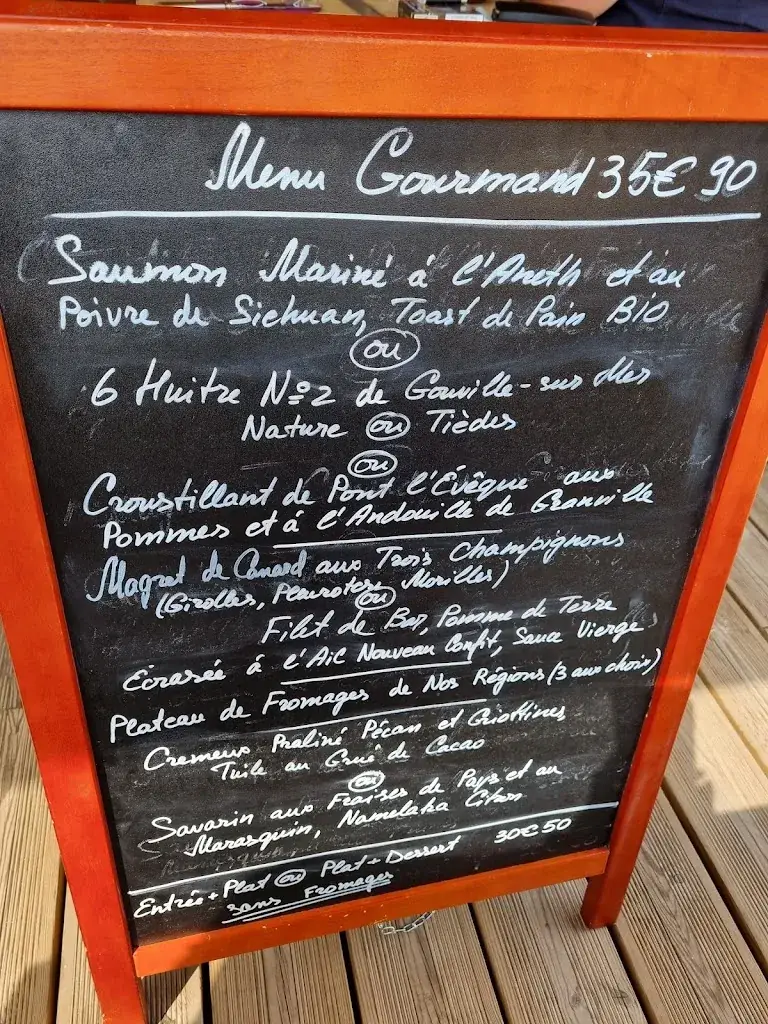 Menu Gourmand 35€90
Saumon Mariné à l'Aneth et au
Poivre de Sichuan, Toast de Pain BIO
ou
6 Huitre N°2 de Gouville-sur Mer
Nature ou Tièdes
ou
Croustillant de Pont l'Évêque aux
Pommes et à l'Andouille de Granville
Magret de Canard aux Trois Champignons
(Girolles, Pleurotes, Morilles)
ou
Filet de Bar, Pomme de Terre
Ecrasée à l'Ail Nouveau Confit, Sauce Vierge
Plateau de Fromages de Nos Régions (3 aux choix)
Cremeux Praliné Pécan et Griottines
Tuile au Grué de Cacao
ou
Savarin aux Fraises de Pays et au
Marasquin, Namelaka Citron
Entrée + Plat ou Plat + Dessert 30€50
sans Fromages